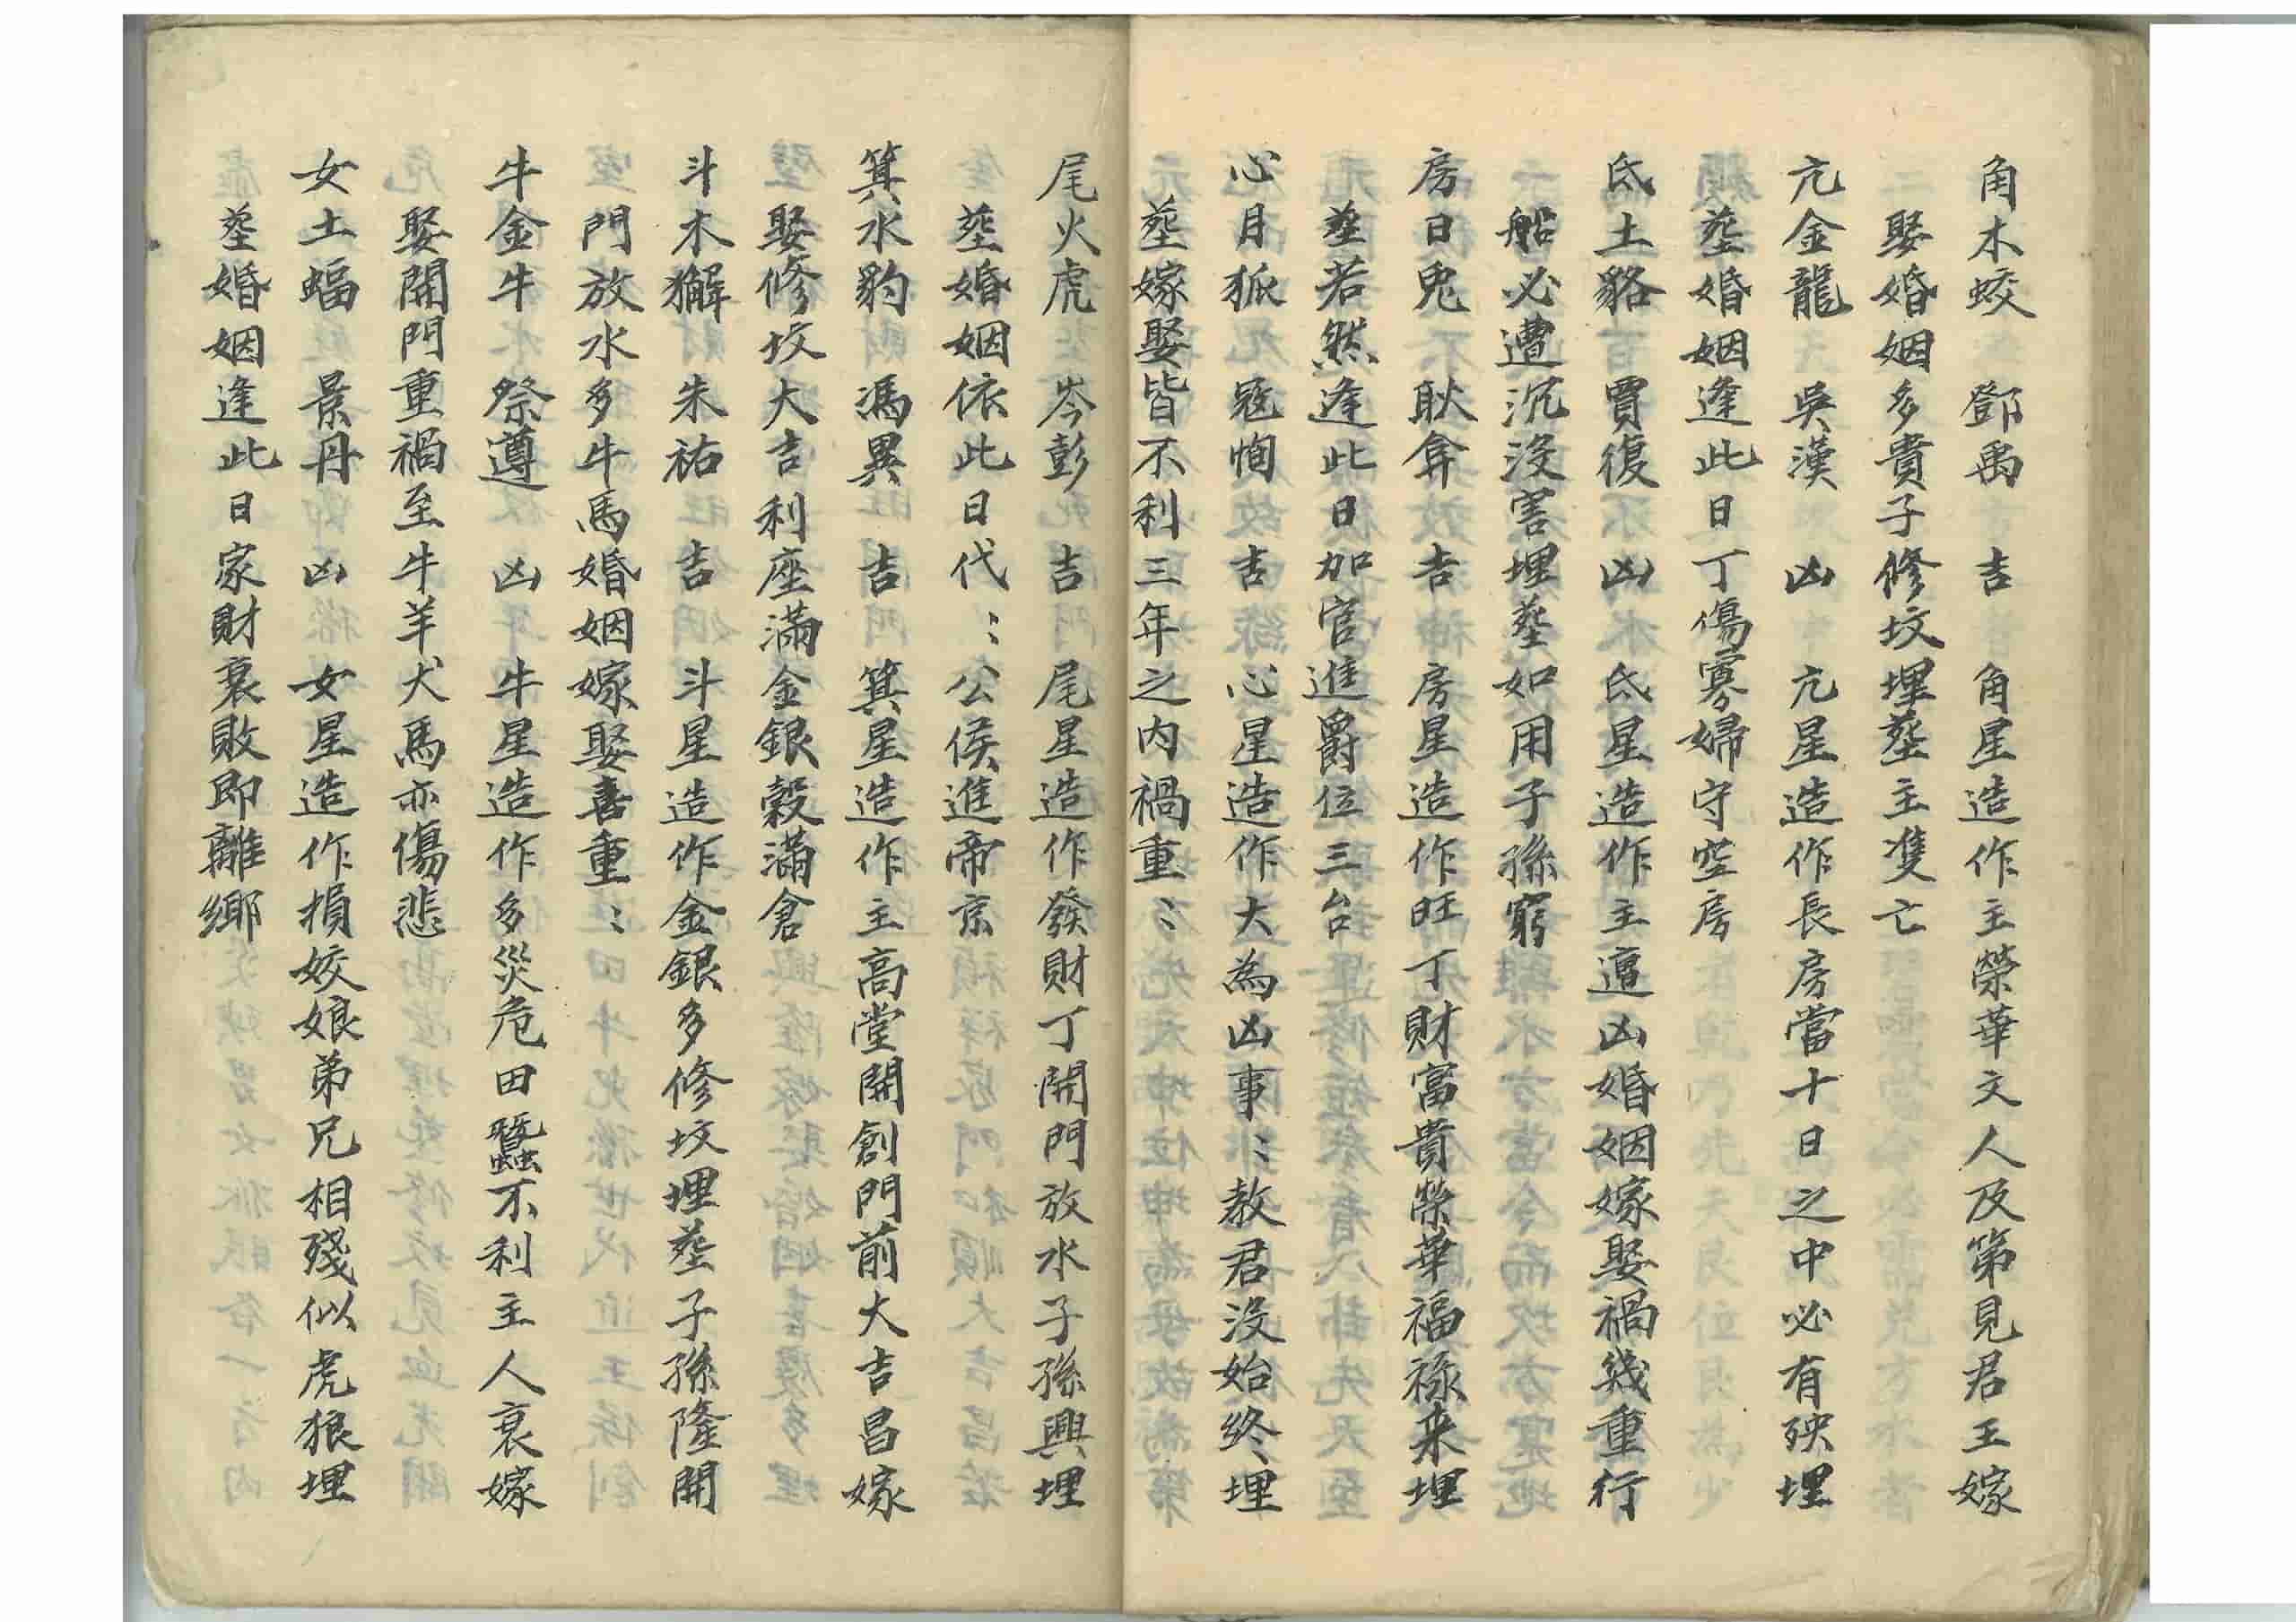 角木蛟 鄧禹 吉 角星造作主榮華文人及第見君王嫁
娶婚姻多貴子修坟埋塟主隻亡
亢金龍 吳漢 凶 亢星造作長房當十日之中必有殃埋
塟婚姻逢此日丁傷寡婦守空房
氐土貉 賈復 凶 氐星造作主遭凶婚姻嫁娶禍幾重行
船必遭沉沒害埋塟如用子孫窮
房日兎 耿弇 吉 房星造作旺丁財富貴榮華福祿来埋
塟若然逢此日加官進爵位三台
心月狐 寇恂 吉 心星造作大為凶事〻教君沒始終埋
塟嫁娶皆不利三年之內禍重〻
尾火虎 岑彭 吉 尾星造作發財丁開門放水子孫興埋
塟婚姻依此日代〻公侯進帝京
箕水豹 馮異 吉 箕星造作主高堂開創門前大吉昌嫁
娶修坟大吉利座滿金銀穀滿倉
斗木獬 朱祐 吉 斗星造作金銀多修坟埋塟子孫隆開
門放水多牛馬婚姻嫁娶喜重〻
牛金牛 祭遵 凶 牛星造作多災危田蠶不利主人衰嫁
娶開門重禍至牛羊犬馬亦傷悲
女土蝠 景丹 凶 女星造作損姣娘弟兄相殘似虎狼埋
塟婚姻逢此日家財衰敗即離鄉